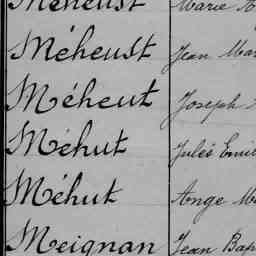 Méheust Marie
Méheust Jean
Méheut Joseph
Méhut Jules
Méhut Ange
Meignan Jean